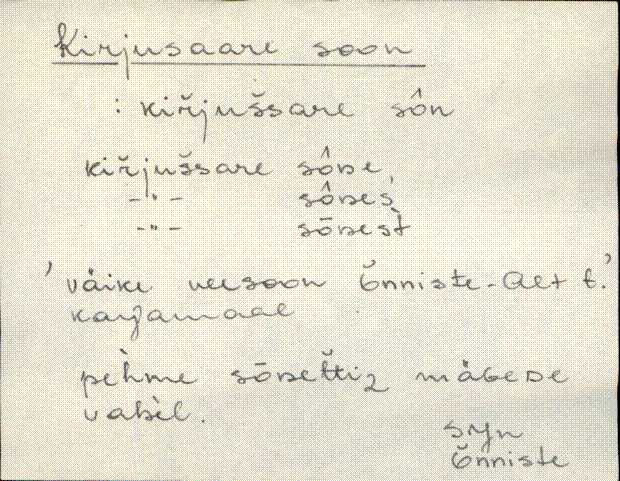 Kirjusaare soon
: kiŕjušsare sôn
kiŕjušsare sône,
–"– sônes,
–"– sōnest̀
'väike veesoon Õnniste-Alt t.'
karjamaal
pèhme sōneťtiz mäGeDe
vahèl.
Õnniste